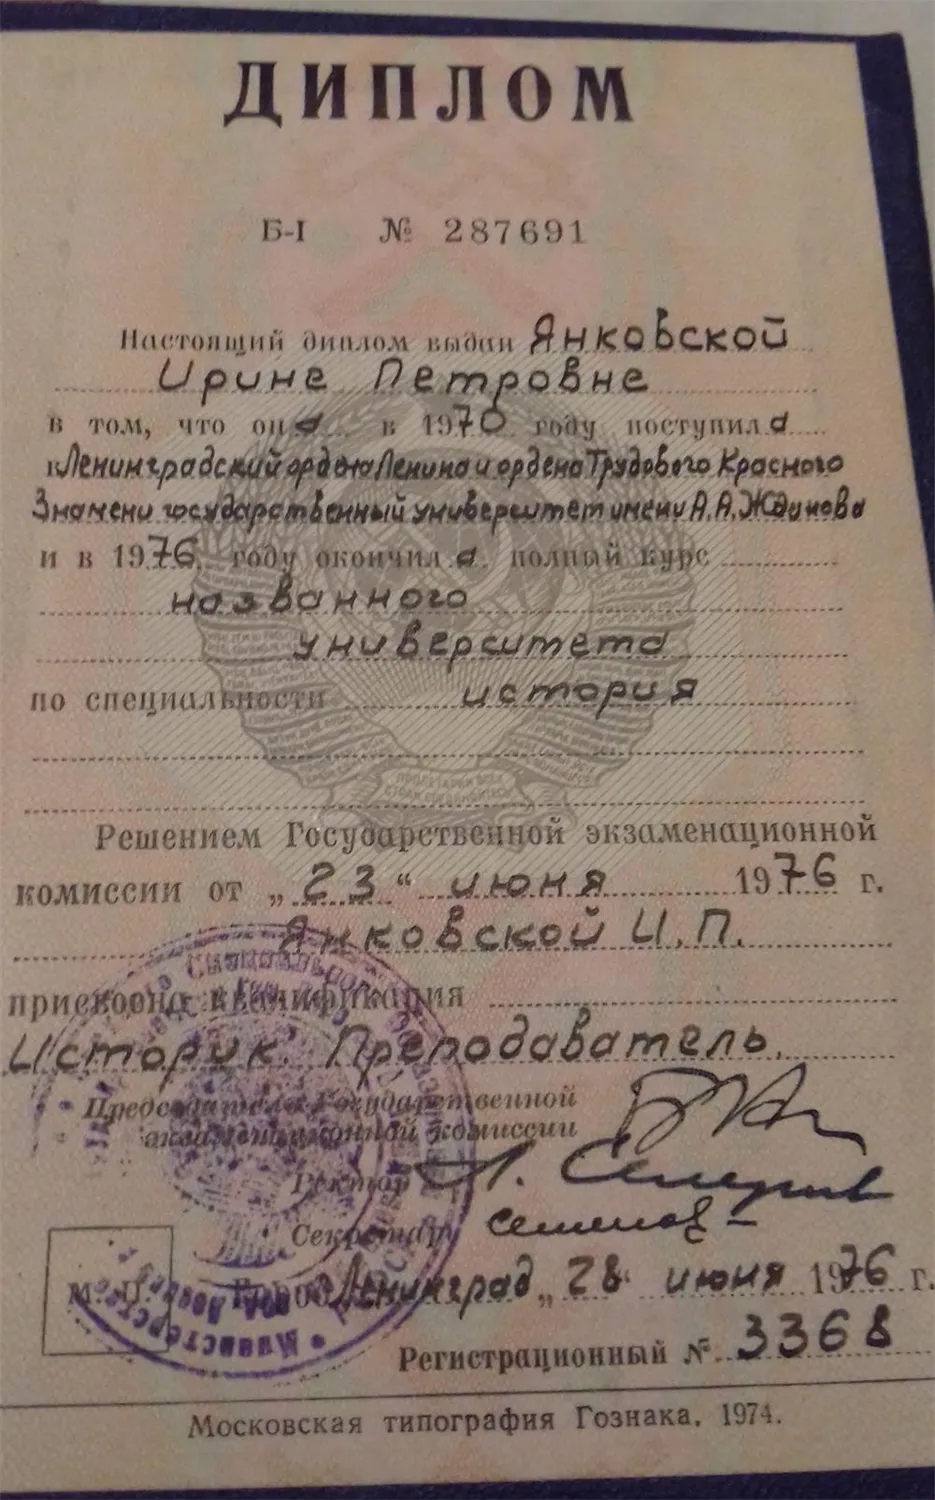 ДИПЛОМ
Б-I № 287691
Настоящий диплом выдан Янковской
Ирине Петровне
в том, что она в 1970 году поступила
в Ленинградский ордена Ленина и ордена Трудового Красного
Знамени государственный университет имени А.А. Жданова
и в 1976 году окончила полный курс
названного
университета
по специальности история
ПРОЛЕТАРИИ ВСЕХ
СТРАН, СОЕДИНЯЙТЕСЬ!
Решением Государственной экзаменационной
комиссии от „23“ июня 1976 г.
Янковской И.П.
присвоена квалификация
Историк. Преподаватель.
Председатель Государственной
экзаменационной комиссии
Ректор
Секретарь
М. П. Город Ленинград „28“ июня 1976 г.
Регистрационный № 3368
Московская типография Гознака. 1974.